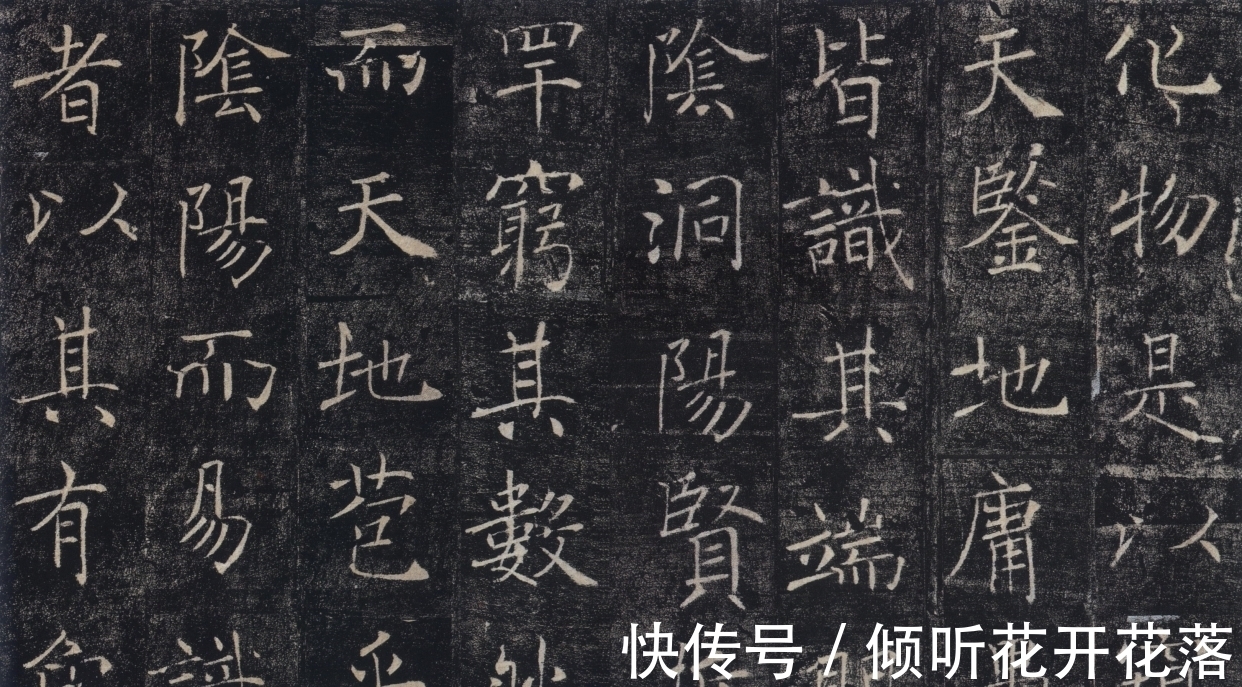 化物是以
天鑒地庸
皆識其端
陰洞陽賢
罕窮其數
而天地苞乎
陰陽而易識
者以其有
快传号 / 倾听花开花落